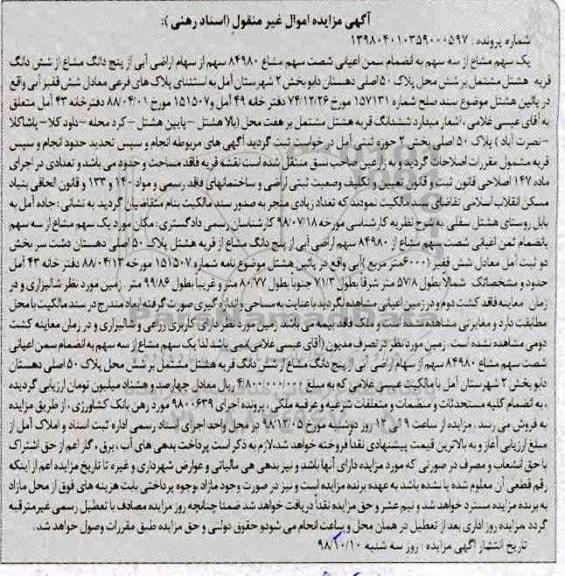 آگهی مزایده اموال غیر منقول (اسناد رهنی):
شماره پرونده: ۱۳۹۸۰۴۰۱۰۳۵۹۰۰۰۵۹۷
یک سهم مشاع از سه سهم به انضمام سمن اعیانی شصت سهم مشاع ۸۴۹۸۰ سهم از سهام اراضی آبی از پنج دانگ مشاع از شش دانگ
قریه هشتل مشتمل بر شش محل پلاک ۵۰ اصلی دهستان دابو بخش ۲ شهرستان آمل به استثنای پلاک های فرعی معادل شش قفیز آبی واقع
در پائین هشتل موضوع سند صلح شماره ۱۵۷۱۳۱ مورخ ۷۴/۱۲/۲۶ دفتر خانه ۴۹ آمل و ۱۵۱۵۰۷ مورخ ۸۸/۰۴/۰۱ دفتر خانه ۴۳ آمل متعلق
به آقای عیسی غلامی، اشعار میدارد ششدانگ قریه هشتل مشتمل بر هفت محل (بالا هشتل - پایین هشتل - کرد محله - داود کلا - پاشاکلا
- نصرت آباد) پلاک ۵۰ اصلی بخش ۲ حوزه ثبتی آمل درخواست ثبت گردید آگهی های مربوطه انجام و سپس تحدید حدود انجام و سپس
قریه مشمول مقررات اصلاحات گردید و به زارعین صاحب نسق منتقل شده است نقشه قریه فاقد مساحت و حدود می باشد و تعدادی در اجرای
ماده ۱۴۷ اصلاحی قانون ثبت و قانون تعیین و تکلیف وضعیت ثبتی اراضی و ساختمانهای فاقد رسمی و مواد ۱۴۰ و ۱۳۳ و قانون الحاقی بنیاد
مسکن انقلاب اسلامی تقاضای سند مالکیت نمودند که تعداد زیادی منجر به صدور سند مالکیت بنام متقاضیان گردید. به نشانی: جاده آمل به
بابل روستای هشتل سفلی به شرح نظریه کارشناسی مورخه ۹۸/۰۷/۱۸ کارشناسان رسمی دادگستری: مکان مورد یک سهم مشاع از سه سهم
بانضمام ثمن اعیانی شصت سهم مشاع از ۸۴۹۸۰ سهم اراضی آبی از پنج دانگ مشاع از قریه هشتل پلاک ۵۰ اصلی دهستان دشت سر بخش
دو ثبت آمل معادل شش قفیز (۶۰۰۰ متر مربع) آبی واقع در پائین هشتل موضوع نامه شماره ۱۵۱۵۰۷ مورخه ۸۸/۰۴/۱۳ دفتر خانه ۴۳ آمل
حدود و مشخصاتک شمالا بطول ۵۷/۸ متر شرقا بطول ۷۱/۳ جنوبا بطول ۸۰/۷۷ متر و غربیا بطول ۹۹/۸۶ متر. زمین مورد نظر شالیزاری و در
زمان معاینه فاقد کشت دوم و در زمین اعیانی مشاهده نگردید با عنایت به مساحی و اندازه گیری صورت گرفته ابعاد مندرج در سند مالکیت با محل
مطابقت دارد و مغایرتی مشاهده نشده است و ملک فاقد بیمه می باشد. زمین مورد نظر دارای کاربری زراعی و شالیزاری و در زمان معاینه کشت
دومی مشاهده نشده است. زمین مورد نظر در تصرف مدیون (آقای عیسی غلامی) می باشد لذا یک سهم مشاع از سه سهم به انضمام سمن اعیانی
شصت سهم مشاع ۸۴۹۸۰ سهم از سهام اراضی آبی از پنج دانگ مشاع از شش دانگ قریه هشتل مشتمل بر شش محل پلاک ۵۰ اصلی دهستان
دابو بخش ۲ شهرستان آمل با مالکیت عیسی غلامی که به مبلغ ۴/۸۰۰/۰۰۰/۰۰۰ ریال معادل چهارصد و هشتاد میلیون تومان ارزیابی گردیده
، به انضمام کلیه مستحدثات و منضمات و متعلقات شرعیه و عرفیه ملکی، پرونده اجرای ۹۸۰۰۶۳۹ مورد رهن بانک کشاورزی، از طریق مزایده
به فروش می رسد. مزایده از ساعت ۹ الی ۱۲ روز دوشنبه مورخ ۹۸/۱۲/۰۵ در محل واحد اجرای اسناد رسمی اداره ثبت اسناد و املاک آمل از
مبلغ ارزیابی آغاز و به بالاترین قیمت پیشنهادی نقدا فروخته خواهد شد. لازم به ذکر است پرداخت بدهی های آب، برق، گاز اعم از حق اشتراک
یا حق انشعاب و مصرف در صورتی که مورد مزایده دارای آنها باشد و نیز بدهی های مالیاتی و عوارض شهرداری و غیره تا تاریخ مزایده اعم از اینکه
رقم قطعی آن معلوم شده یا نشده باشد به عهده برنده مزایده است و نیز در صورت وجود مازاد، وجوه پرداختی بابت هزینه های فوق از محل مازاد
به برنده مزایده مسترد خواهد شد و نیم عشر و حق مزایده نقدا دریافت خواهد شد. ضمنا چنانچه روز مزایده مصادف با تعطیل رسمی غیرمترقبه
گردد مزایده روز اداری بعد از تعطیل در همان محل و ساعت انجام می شود و حقوق دولتی و حق مزایده طبق مقررات وصول خواهد شد.
تاریخ انتشار آگهی مزایده: روز سه شنبه ۹۸/۱۰/۱۰